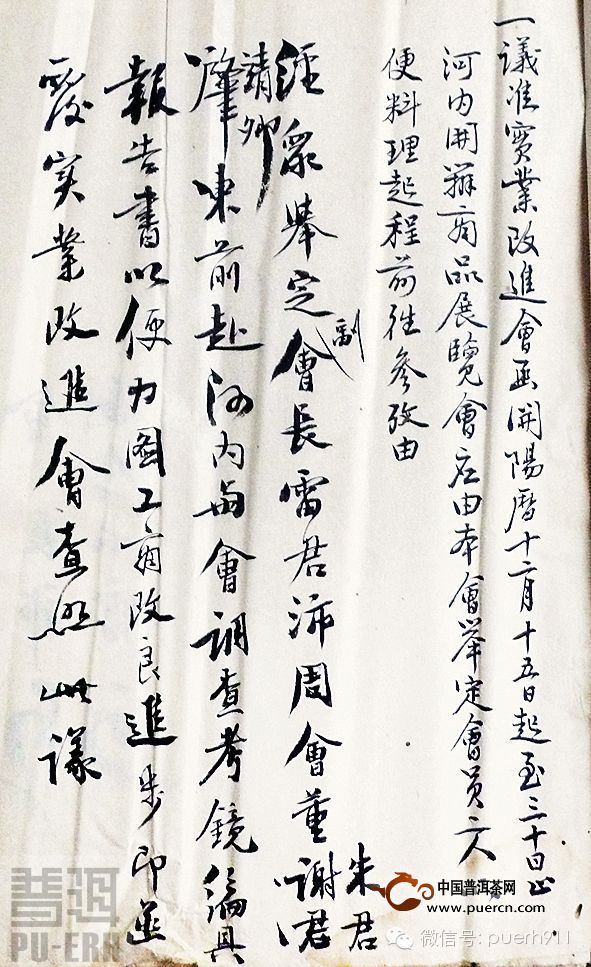 一議准實業改進會函開陽曆十二月十五日起至三十日止
河内開辦商品展覽會应由本會举定會員六人
便料理起程前往參攷由
經眾舉定副會長雷君沛周會董謝君朱君
靖卿肇東前赴河内與會調查考鏡編具
報告書以便力圖工商改良進步即函
覆实業改進會查照此議
普洱
PU-ERH
中国普洱茶网
www.puercn.com
微信号: puerh911